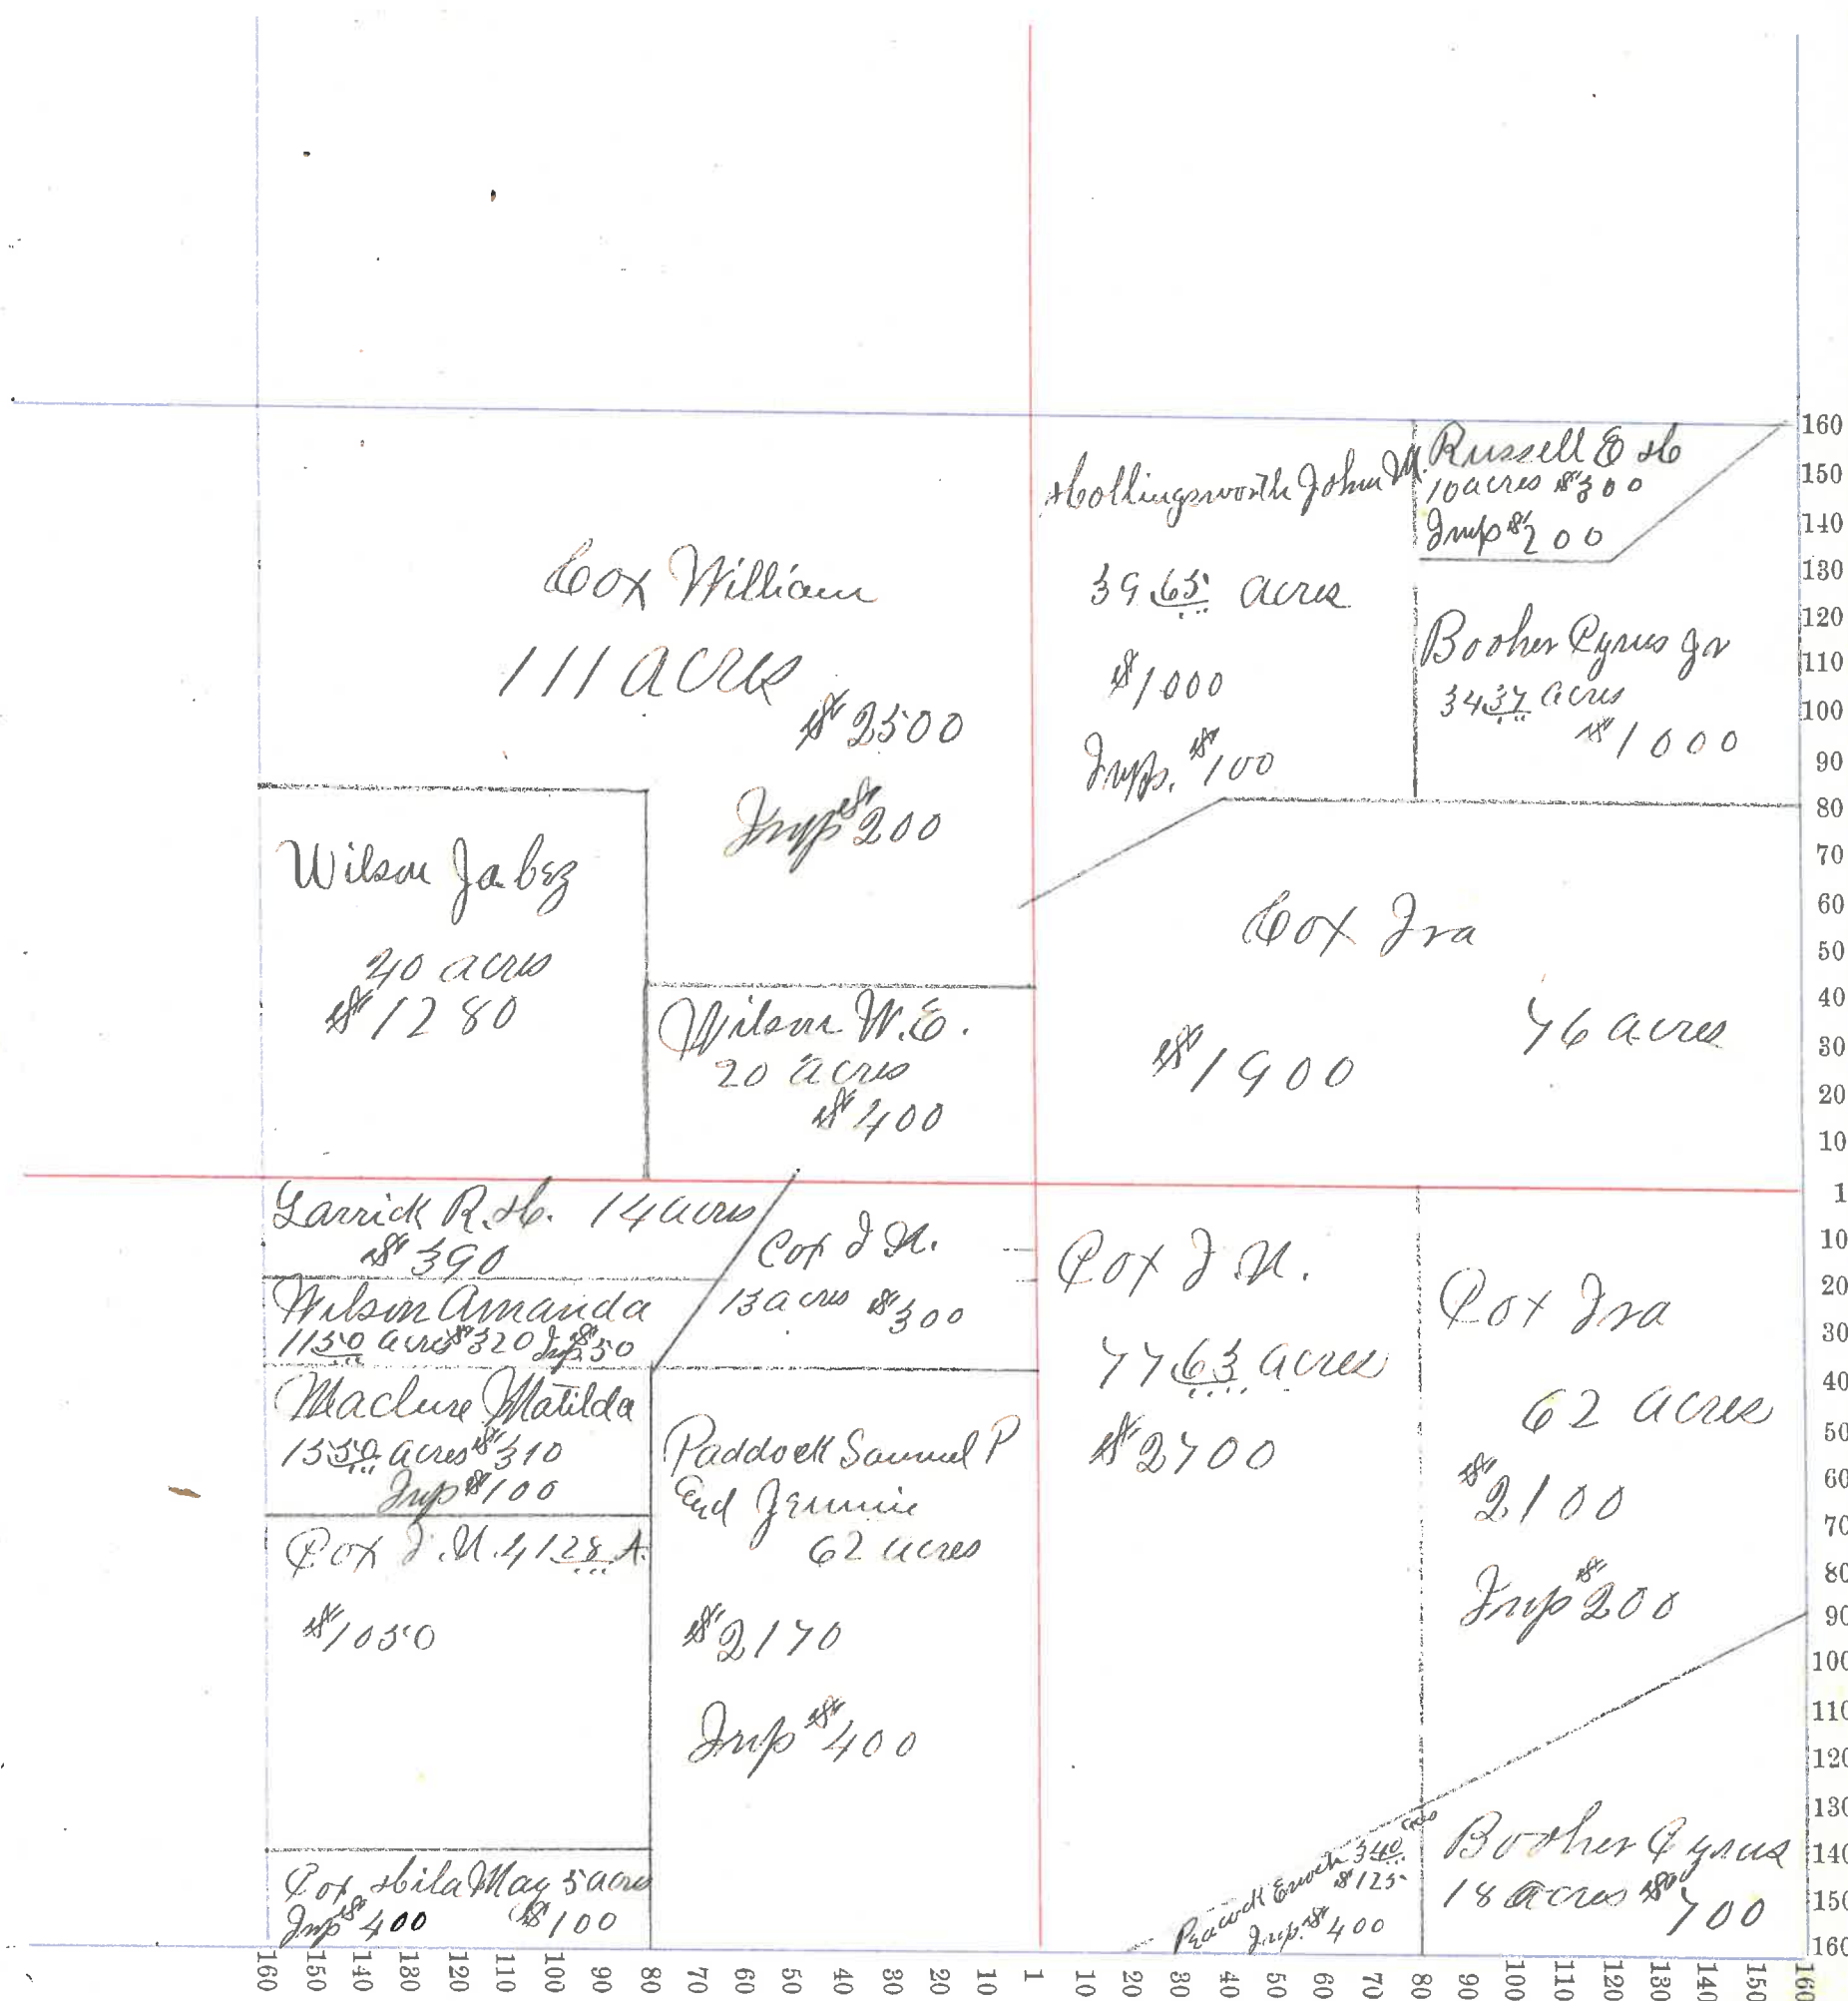 Cox William
111 acres
$2500
Imp $200
Hollingsworth John M.
39.65 acres
$1000
Imps. $100
Russell E H
10 acres $300
Imp $200
Booher Cyrus Jr
34 37 acres
$1000
Wilson Jabez
40 acres
$1280
Wilson W.E.
20 acres
$400
Cox Ira
76 acres
$1900
Larrick R. H. 14 acres
$390
Wilson Amanda
11 50 acres $320 Imp. $50
Cox J N.
13 acres $300
Maclure Matilda
13 50 acres $310
Imp $100
Cox J. N. 41 28 A.
$1050
Cox Hila May 5 acres
Imp $400 $100
Paddock Samuel P
and Jennie
62 acres
$2170
Imp $400
Cox J. N.
77 63 acres
$2700
Cox Ira
62 acres
$2100
Imp $200
Peacock Enoch 3 40 acres
$125
Imp. $400
Booher Cyrus
18 acres $700
160
150
140
130
120
110
100
90
80
70
60
50
40
30
20
10
1
10
20
30
40
50
60
70
80
90
100
110
120
130
140
150
160
160 150 140 130 120 110 100 90 80 70 60 50 40 30 20 10 1 10 20 30 40 50 60 70 80 90 100 110 120 130 140 150 160